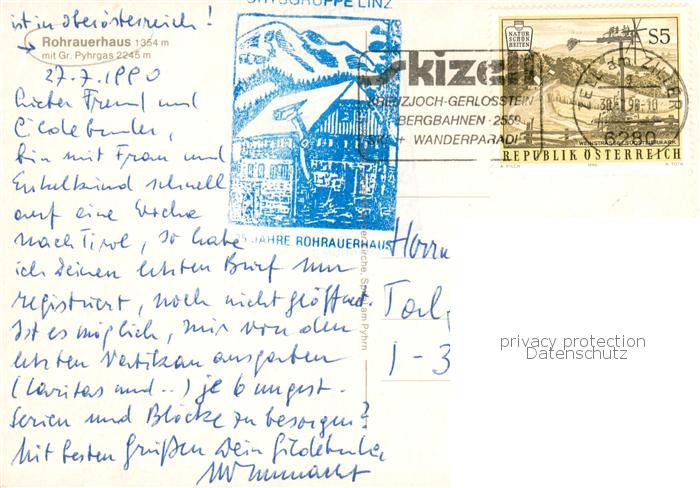 ist in Oberösterreich!
Rohrauerhaus 1354 m
mit Gr. Pyhrgas 2245 m
27.7.1990
Lieber Freund und
Gildebruder,
bin mit Frau und
Enkelkind schnell
auf eine Woche
nach Tirol, so habe
ich Deinen letzten Brief nur
registriert, noch nicht geöffnet.
Ist es möglich, mir von den
letzten Vatikan ausgaben
(Caritas und ..) je 6 ungest.
Serien und Blöcke zu besorgen?
Mit besten Grüßen Dein Gildebruder
ORTSGRUPPE LINZ
JAHRE ROHRAUERHAUS
skizell
KREUZJOCH-GERLOSSTEIN
BERGBAHNEN · 2559
SKI + WANDERPARADI
NATUR
SCHÖN
HEITEN
S5
ZELL am ZILLER
6280
REPUBLIK ÖSTERREICH
Herrn
I-3
Spital am Pyhrn
privacy protection
Datenschutz